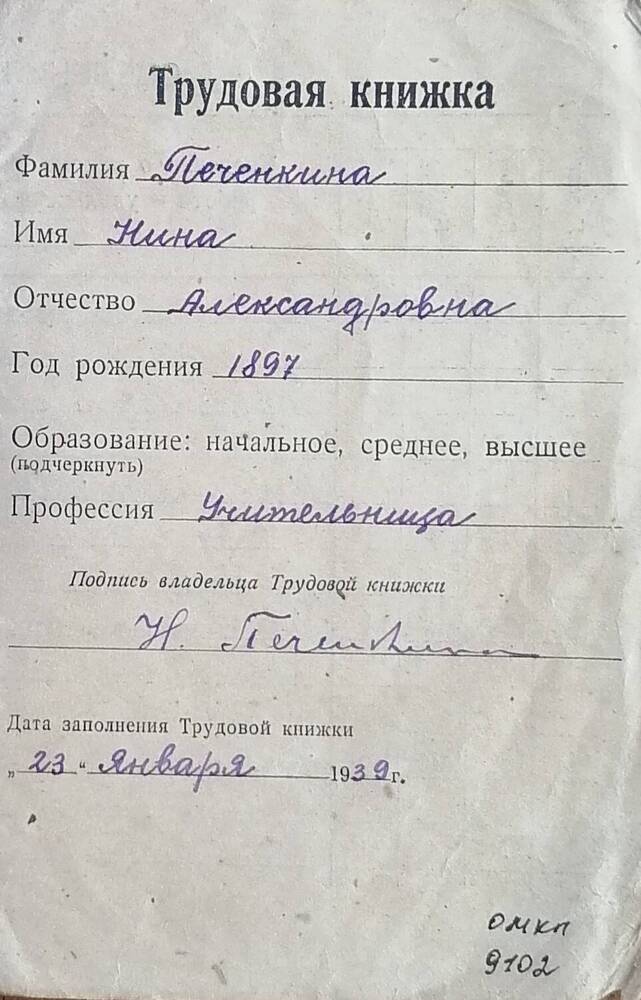 Трудовая книжка
Фамилия Печенкина
Имя Нина
Отчество Александровна
Год рождения 1897
Образование: начальное, среднее, высшее
(подчеркнуть)
Профессия Учительница
Подпись владельца Трудовой книжки
Н. Печенкина
Дата заполнения Трудовой книжки
„23“ Января 1939 г.
ОМКП
9102